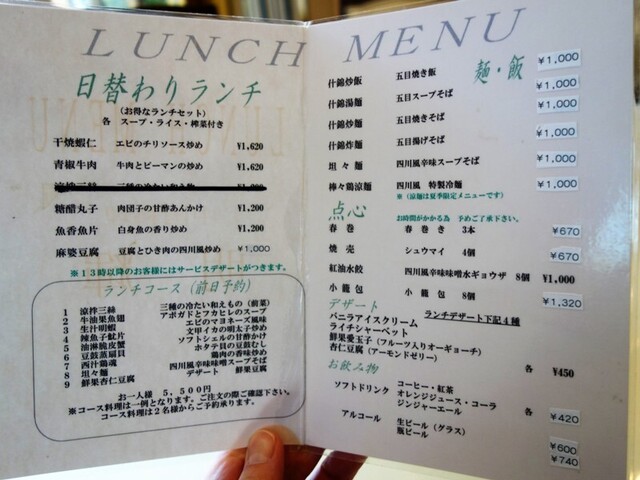 LUNCH MENU
日替わりランチ
(お得なランチセット)
各 スープ・ライス・搾菜付き
干焼蝦仁 エビのチリソース炒め ¥1,620
青椒牛肉 牛肉とピーマンの炒め ¥1,620
糖醋丸子 肉団子の甘酢あんかけ ¥1,200
魚香魚片 白身魚の香り炒め ¥1,200
麻婆豆腐 豆腐とひき肉の四川風炒め ¥1,000
※13時以降のお客様にはサービスデザートがつきます。
ランチコース(前日予約)
1 涼拌三絲 三種の冷たい和えもの(前菜)
2 牛油果魚翅 アボガドとフカヒレのスープ
3 生汁明蝦 エビのマヨネーズ風味
4 辣魚子魷片 文甲イカの明太子炒め
5 油淋脆皮蟹 ソフトシェルの甘酢かけ
6 豆鼓蒸扇貝 ホタテ貝の豆鼓むし
7 西汁鶏魂 鶏肉の香味炒め
8 坦々麺 四川風辛味味噌スープそば
9 鮮果杏仁豆腐 デザート 鮮果豆腐
お一人様 5,500円
※コース料理は一例となります。ご注文の際ご確認下さい。
コース料理は2名様からご予約承ります。
麺・飯
什錦炒飯 五目焼き飯 ¥1,000
什錦湯麺 五目スープそば ¥1,000
什錦炒麺 五目焼きそば ¥1,000
什錦炸麺 五目揚げそば ¥1,000
坦々麺 四川風辛味スープそば ¥1,000
棒々鶏涼麺 四川風 特製冷麺 ¥1,000
※(涼麺は夏季限定メニューです)
点心 お時間がかかる為 予めご了承下さい。
春巻 春巻き 3本 ¥670
焼売 シュウマイ 4個 ¥670
紅油水餃 四川風辛味味噌水ギョウザ 8個 ¥1,000
小籠包 小籠包 8個 ¥1,320
デザート ランチデザート下記4種
バニラアイスクリーム
ライチシャーベット
鮮果愛玉子(フルーツ入りオーギョーチ)
杏仁豆腐(アーモンドゼリー) 各 ¥450
お飲み物
ソフトドリンク コーヒー・紅茶
オレンジジュース・コーラ
ジンジャーエール 各 ¥420
アルコール 生ビール(グラス) ¥600
瓶ビール ¥740